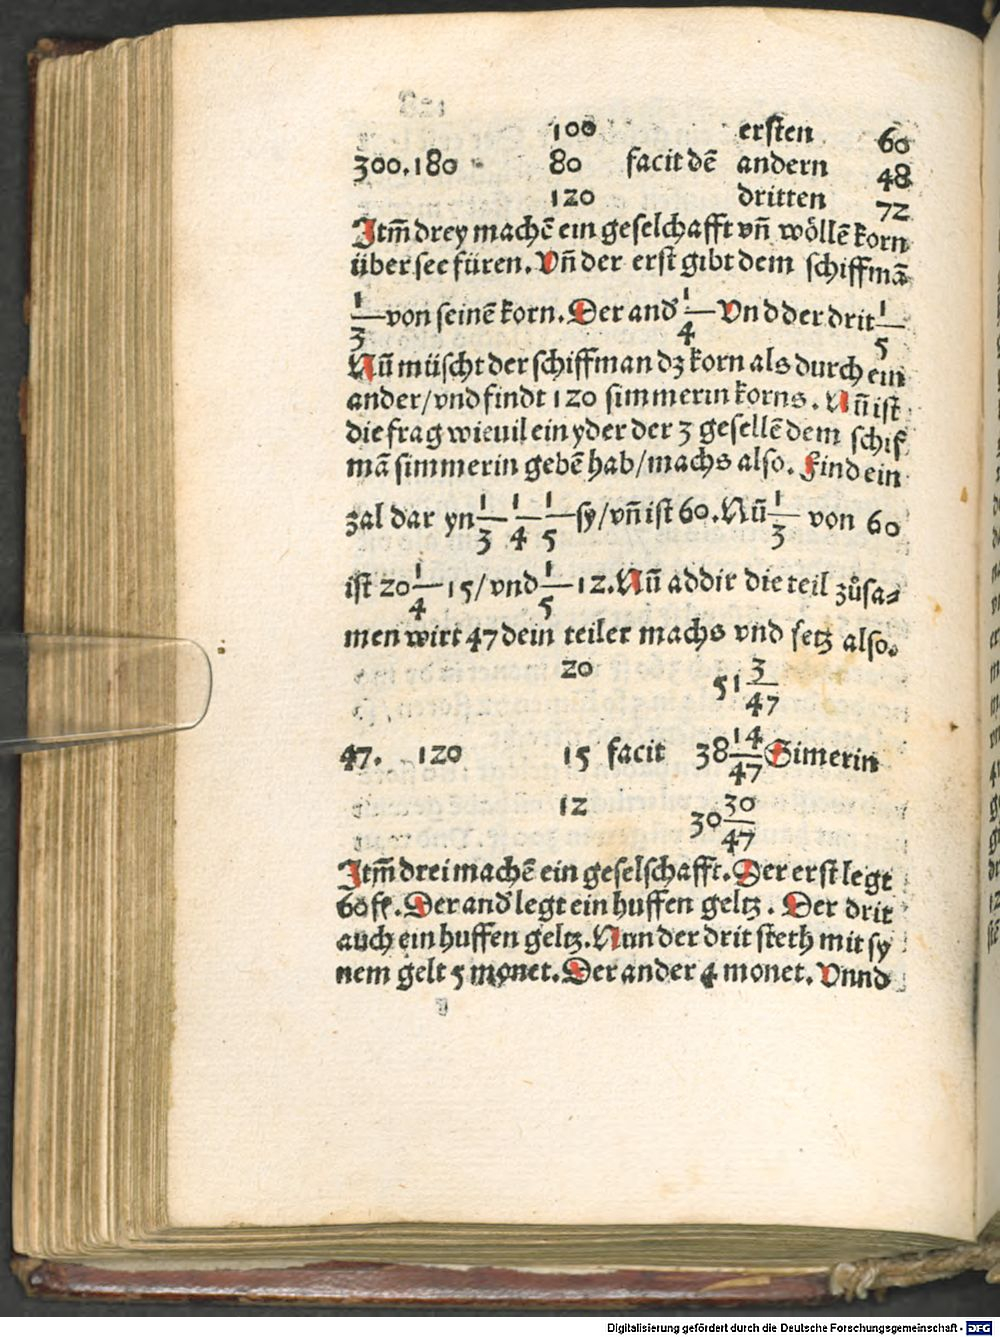 100 ersten 60
300.180 80 facit dē andern 48
120 dritten 72
Itm̄ drey machē ein geselchafft vn̄ wöllē korn
über see füren. Vn̄ der erst gibt dem schiffmā
1/3 von seinē korn. Der and̄ 1/4 Vnd der drit 1/5
Nū müscht der schiffman dz korn als durch ein
ander/vnd findt 120 simmerin korns. Nū ist
die frag wieuil ein yder der 3 gesellē dem schif
mā simmerin gebē hab/machs also. Find ein
zal dar yn 1/3 1/4 1/5 sy/vn̄ ist 60. Nū 1/3 von 60
ist 20 1/4 15/vnd 1/5 12. Nū addir die teil zůsa⸗
men wirt 47 dein teiler machs vnd setz also.
20 51 3/47
47. 120 15 facit 38 14/47 Simerin
12 30 30/47
Itm̄ drei machē ein geselschafft. Der erst legt
60 fl. Der and̄ legt ein huffen geltz. Der drit
auch ein huffen geltz. Nun der drit steth mit sy
nem gelt 5 monet. Der ander 4 monet. Vnnd
Digitalisierung gefördert durch die Deutsche Forschungsgemeinschaft - DFG